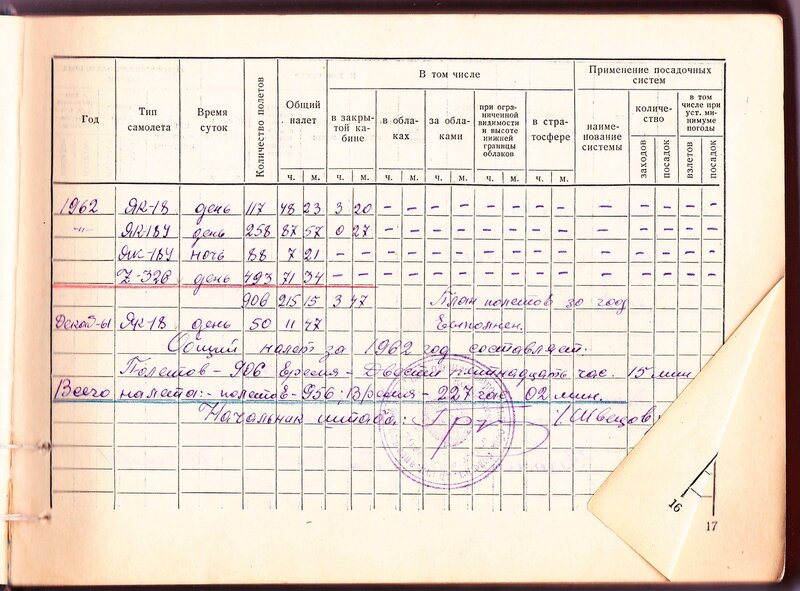 Год
Тип самолета
Время суток
Количество полетов
Общий налет
ч. м.
В том числе
в закрытой кабине
ч. м.
в облаках
ч. м.
за облаками
ч. м.
при ограниченной видимости и высоте нижней границы облаков
ч. м.
в стратосфере
ч. м.
Применение посадочных систем
наименование системы
количество
заходов
посадок
в том числе при уст. минимуме погоды
взлетов
посадок
1962 ЯК-18 день 117 48 23 3 20 - - - - - - - - - - - - -
-"- ЯК-18У день 258 87 57 0 27 - - - - - - - - - - - - -
ЯК-18У ночь 88 7 21 - - - - - - - - - - - - - - -
Z-326 день 493 71 34 - - - - - - - - - - - - - - -
906 215 15 3 47 План полетов за год
Декаб-61 Як-18 день 50 11 47 Выполнен.
Общий налет за 1962 год составляет:
Полетов - 906 Время - Двести пятнадцать час. 15 мин
Всего налета:- полетов - 956; Время - 227 час 02 мин.
Начальник штаба: /Швецов
16
17